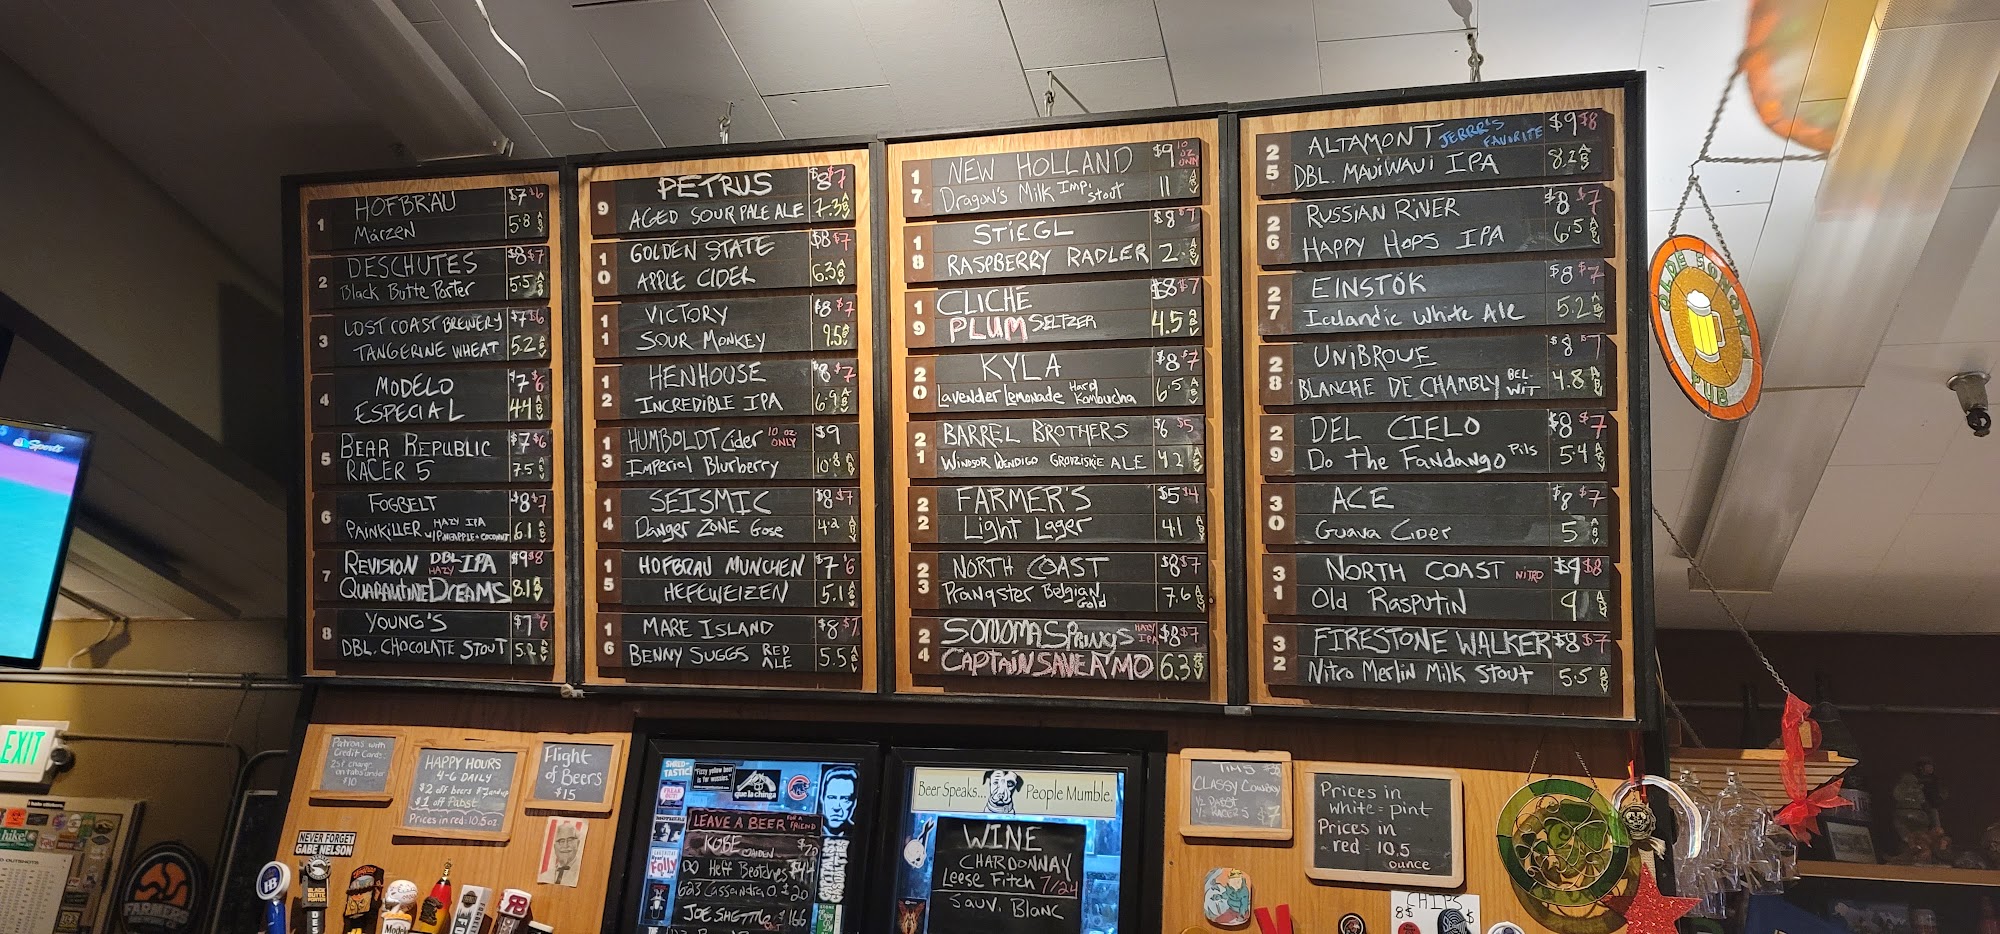 1 HOFBRÄU $7 $6
Märzen 5.8 ABV
2 DESCHUTES $8 $7
Black Butte Porter 5.5 ABV
3 LOST COAST BREWERY $7 $6
TANGERINE WHEAT 5.2 ABV
4 MODELO $7 $6
ESPECIAL 4.4 ABV
5 BEAR REPUBLIC $7 $6
RACER 5 7.5 ABV
6 FOGBELT $8 $7
PAINKILLER HAZY IPA W/PINEAPPLE + COCONUT 6.1 ABV
7 REVISION DBL HAZY IPA $9 $8
QUARANTINE DREAMS 8.1
8 YOUNG'S $7 $6
DBL. CHOCOLATE STOUT 5.2 ABV
9 PETRUS $8 $7
AGED SOUR PALE ALE 7.3 ABV
10 GOLDEN STATE $8 $7
APPLE CIDER 6.3 ABV
11 VICTORY $8 $7
SOUR MONKEY 9.5
12 HENHOUSE $8 $7
INCREDIBLE IPA 6.9 ABV
13 HUMBOLDT Cider 10 OZ ONLY $9
Imperial Blurberry 10.8 ABV
14 SEISMIC $8 $7
Danger ZONE Gose 4.2 ABV
15 HOFBRAU MUNCHEN $7 $6
HEFEWEIZEN 5.1 ABV
16 MARE ISLAND $8 $7
BENNY SUGGS RED ALE 5.5 ABV
17 NEW HOLLAND $9 10 OZ ONLY
Dragon's Milk Imp. Stout 11 ABV
18 STIEGL $8 $7
RASPBERRY RADLER 2. ABV
19 CLICHÉ $8 $7
PLUM SELTZER 4.5 ABV
20 KYLA $8 $7
Lavender Lemonade Hard Kombucha 6.5 ABV
21 BARREL BROTHERS $6 $5
WINDSOR WENDIGO GRODZISKIE ALE 4.2 ABV
22 FARMER'S $5 $4
Light Lager 4.1 ABV
23 NORTH COAST $8 $7
Prangster Belgian Gold 7.6 ABV
24 SONOMA SPRINGS HAZY IPA $8 $7
CAPTAIN SAVE A'MO 6.3 ABV
25 ALTAMONT JERRR'S FAVORITE $9 $8
DBL. MAUiWAUi IPA 8.2 ABV
26 RUSSIAN RIVER $8 $7
HAPPY HOPS IPA 6.5 ABV
27 EINSTÖK $8 $7
Icelandic White Ale 5.2 ABV
28 UNIBROUE $8 $7
BLANCHE DE CHAMBLY BEL. WIT 4.8 ABV
29 DEL CIELO $8 $7
Do the Fandango Pils 5.4 ABV
30 ACE $8 $7
Guava Cider 5 ABV
31 NORTH COAST NITRO $9 $8
Old Rasputin 9 ABV
32 FIRESTONE WALKER $8 $7
Nitro Merlin Milk Stout 5.5 ABV
OLDE SONOMA
PUB
Sports
EXIT
Patrons with
Credit Cards:
on tabs under
$10
HAPPY HOURS
4-6 DAILY
$2 off beers $7 and up
$1 off Pabst
Prices in red: 10.5oz
Flight
of Beers
$15
NEVER FORGET
GABE NELSON
LEAVE A BEER FOR A FRIEND
KOBE
Heff Beotches $44
623 Cassandra O. $20
que la chinga
Beer Speaks... People Mumble.
WINE
CHARDONNAY
Leese Fitch 7/24
Sauv. Blanc
CLASSY COWBOY
Prices in
white = pint
Prices in
red = 10.5
ounce
CHIPS
BLACK BUTTE PORTER
FARMERS